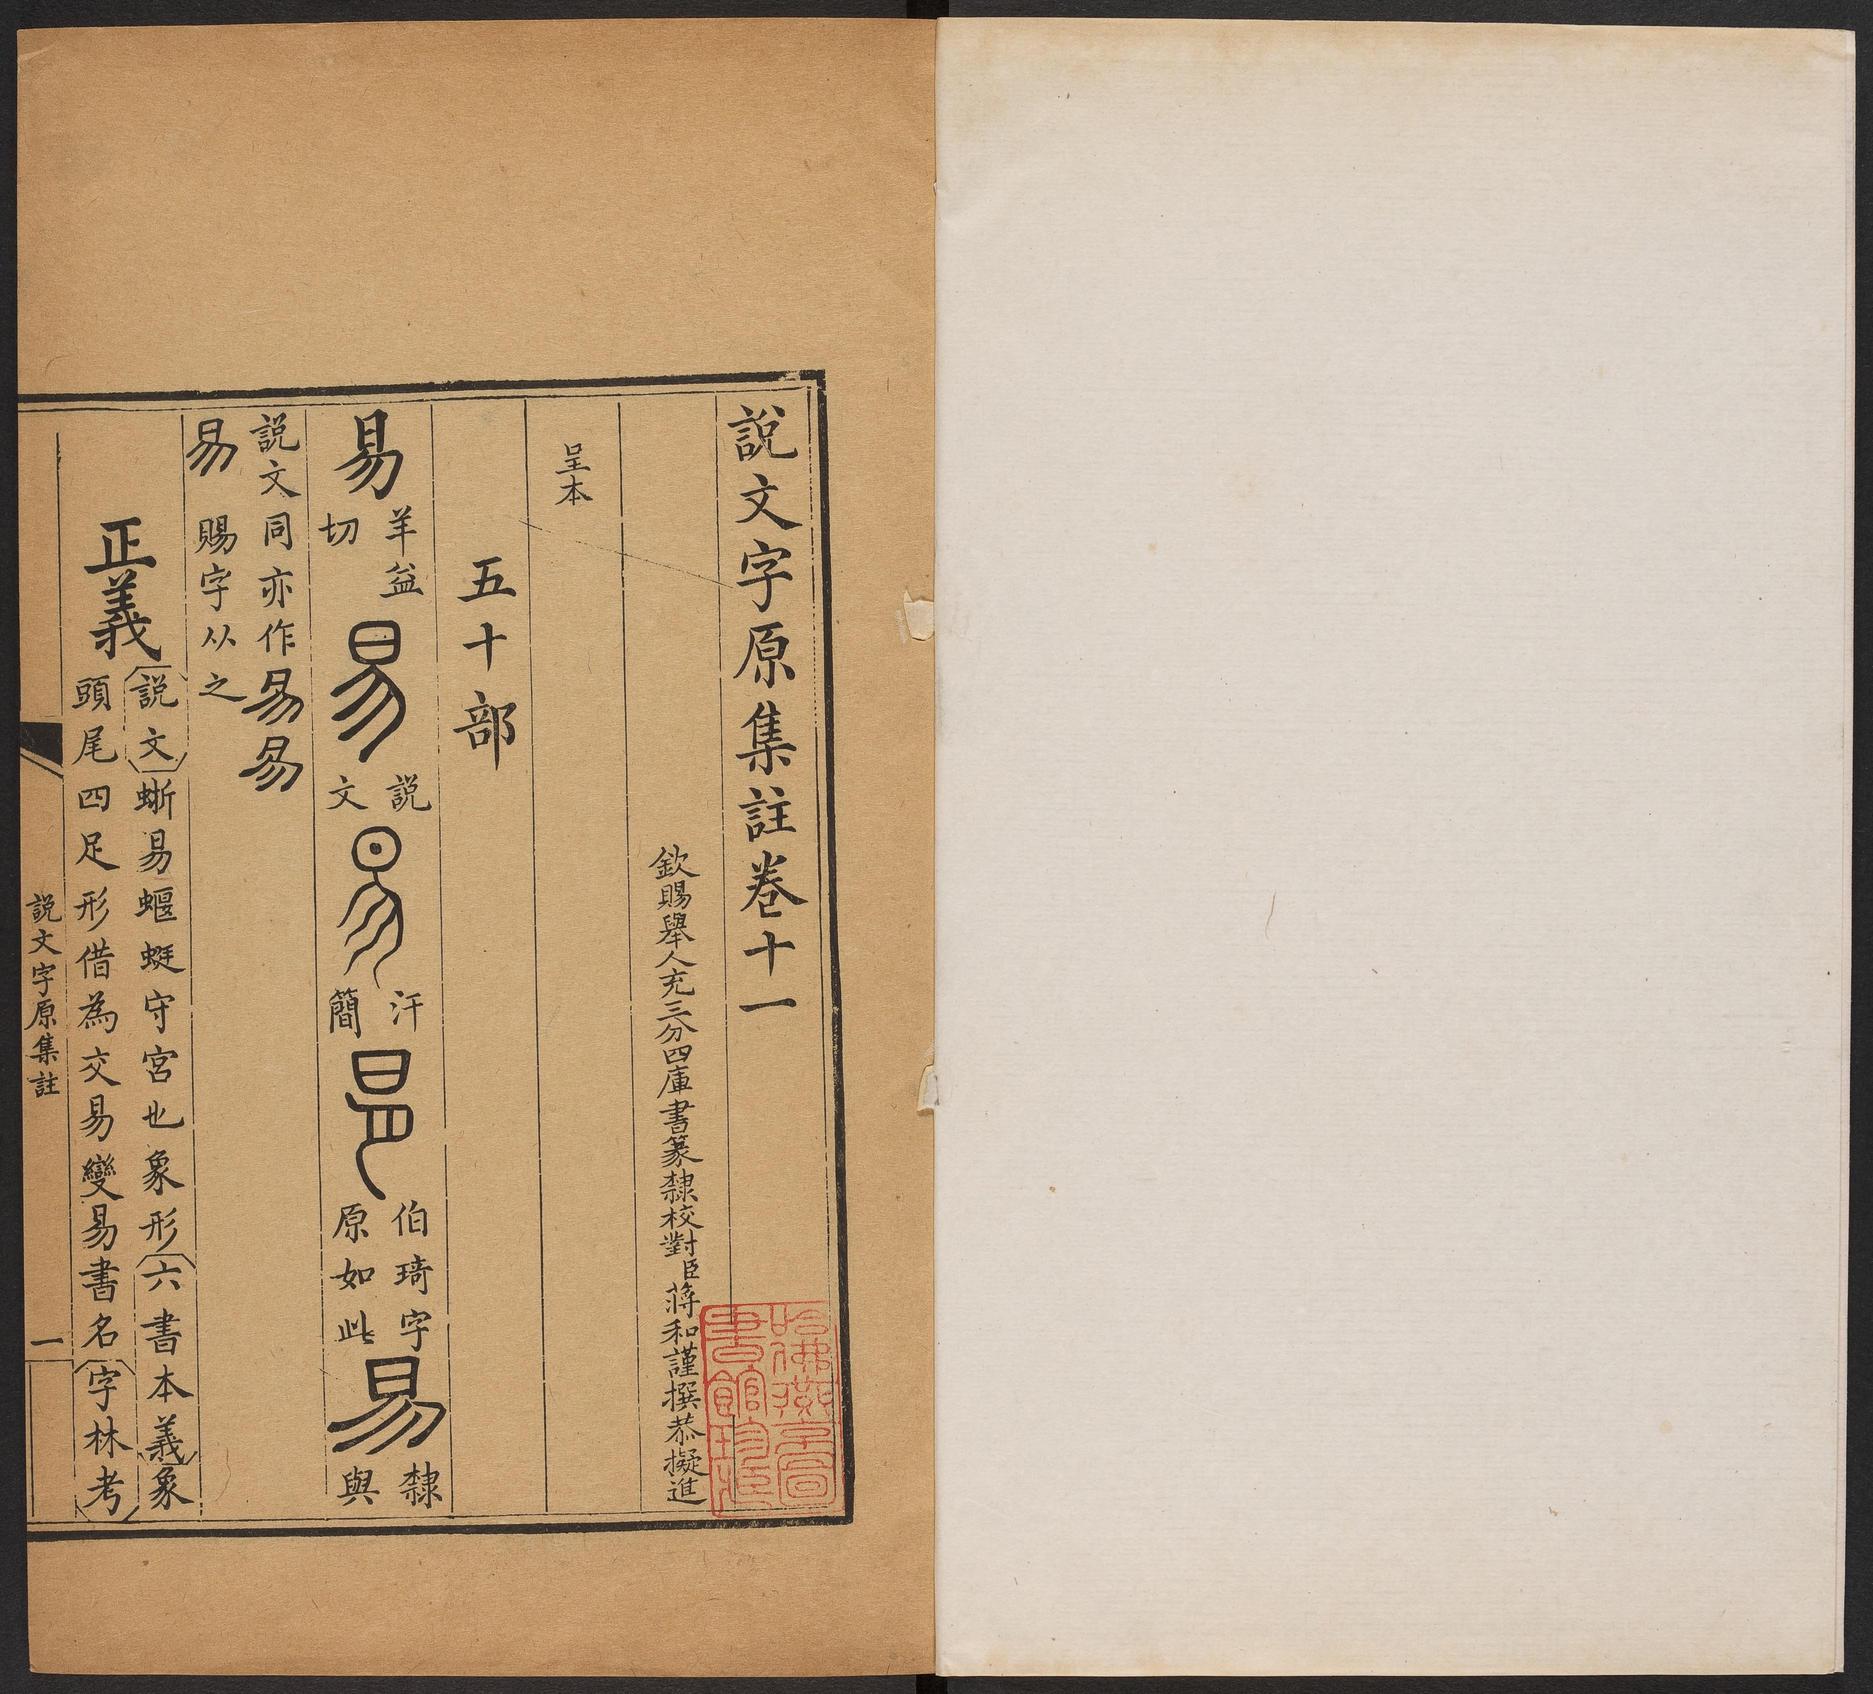 說文字原集註卷十一
欽賜舉人充三分四庫書篆隸校對臣蔣和謹撰恭擬進
呈本
五十部
易 羊益切 易 說文 易 汗簡 易 伯琦字原如此 易 隸與
說文同亦作易易
易 賜字从之
正義 說文蜥易蝘蜓守宮也象形六書本義象
頭尾四足形借為交易變易書名字林考
說文字原集註
一
哈佛燕京圖
書館珍藏